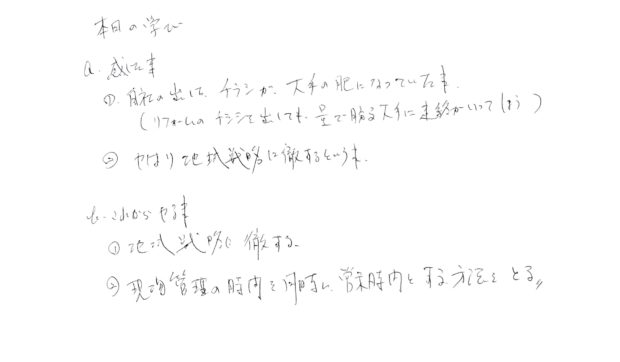 本日の学び
a. 感じた事
① 自社の出して、チラシが、大手の肥になっていた事。
(リフォームのチラシを出しても、量で勝る大手に連絡がいってしまう)
② やはり地域戦略に徹するという事。
b. これからやる事
① 地域戦略に徹する。
② 現場管理の時間を同時に、営業時間とする方法をとる〃